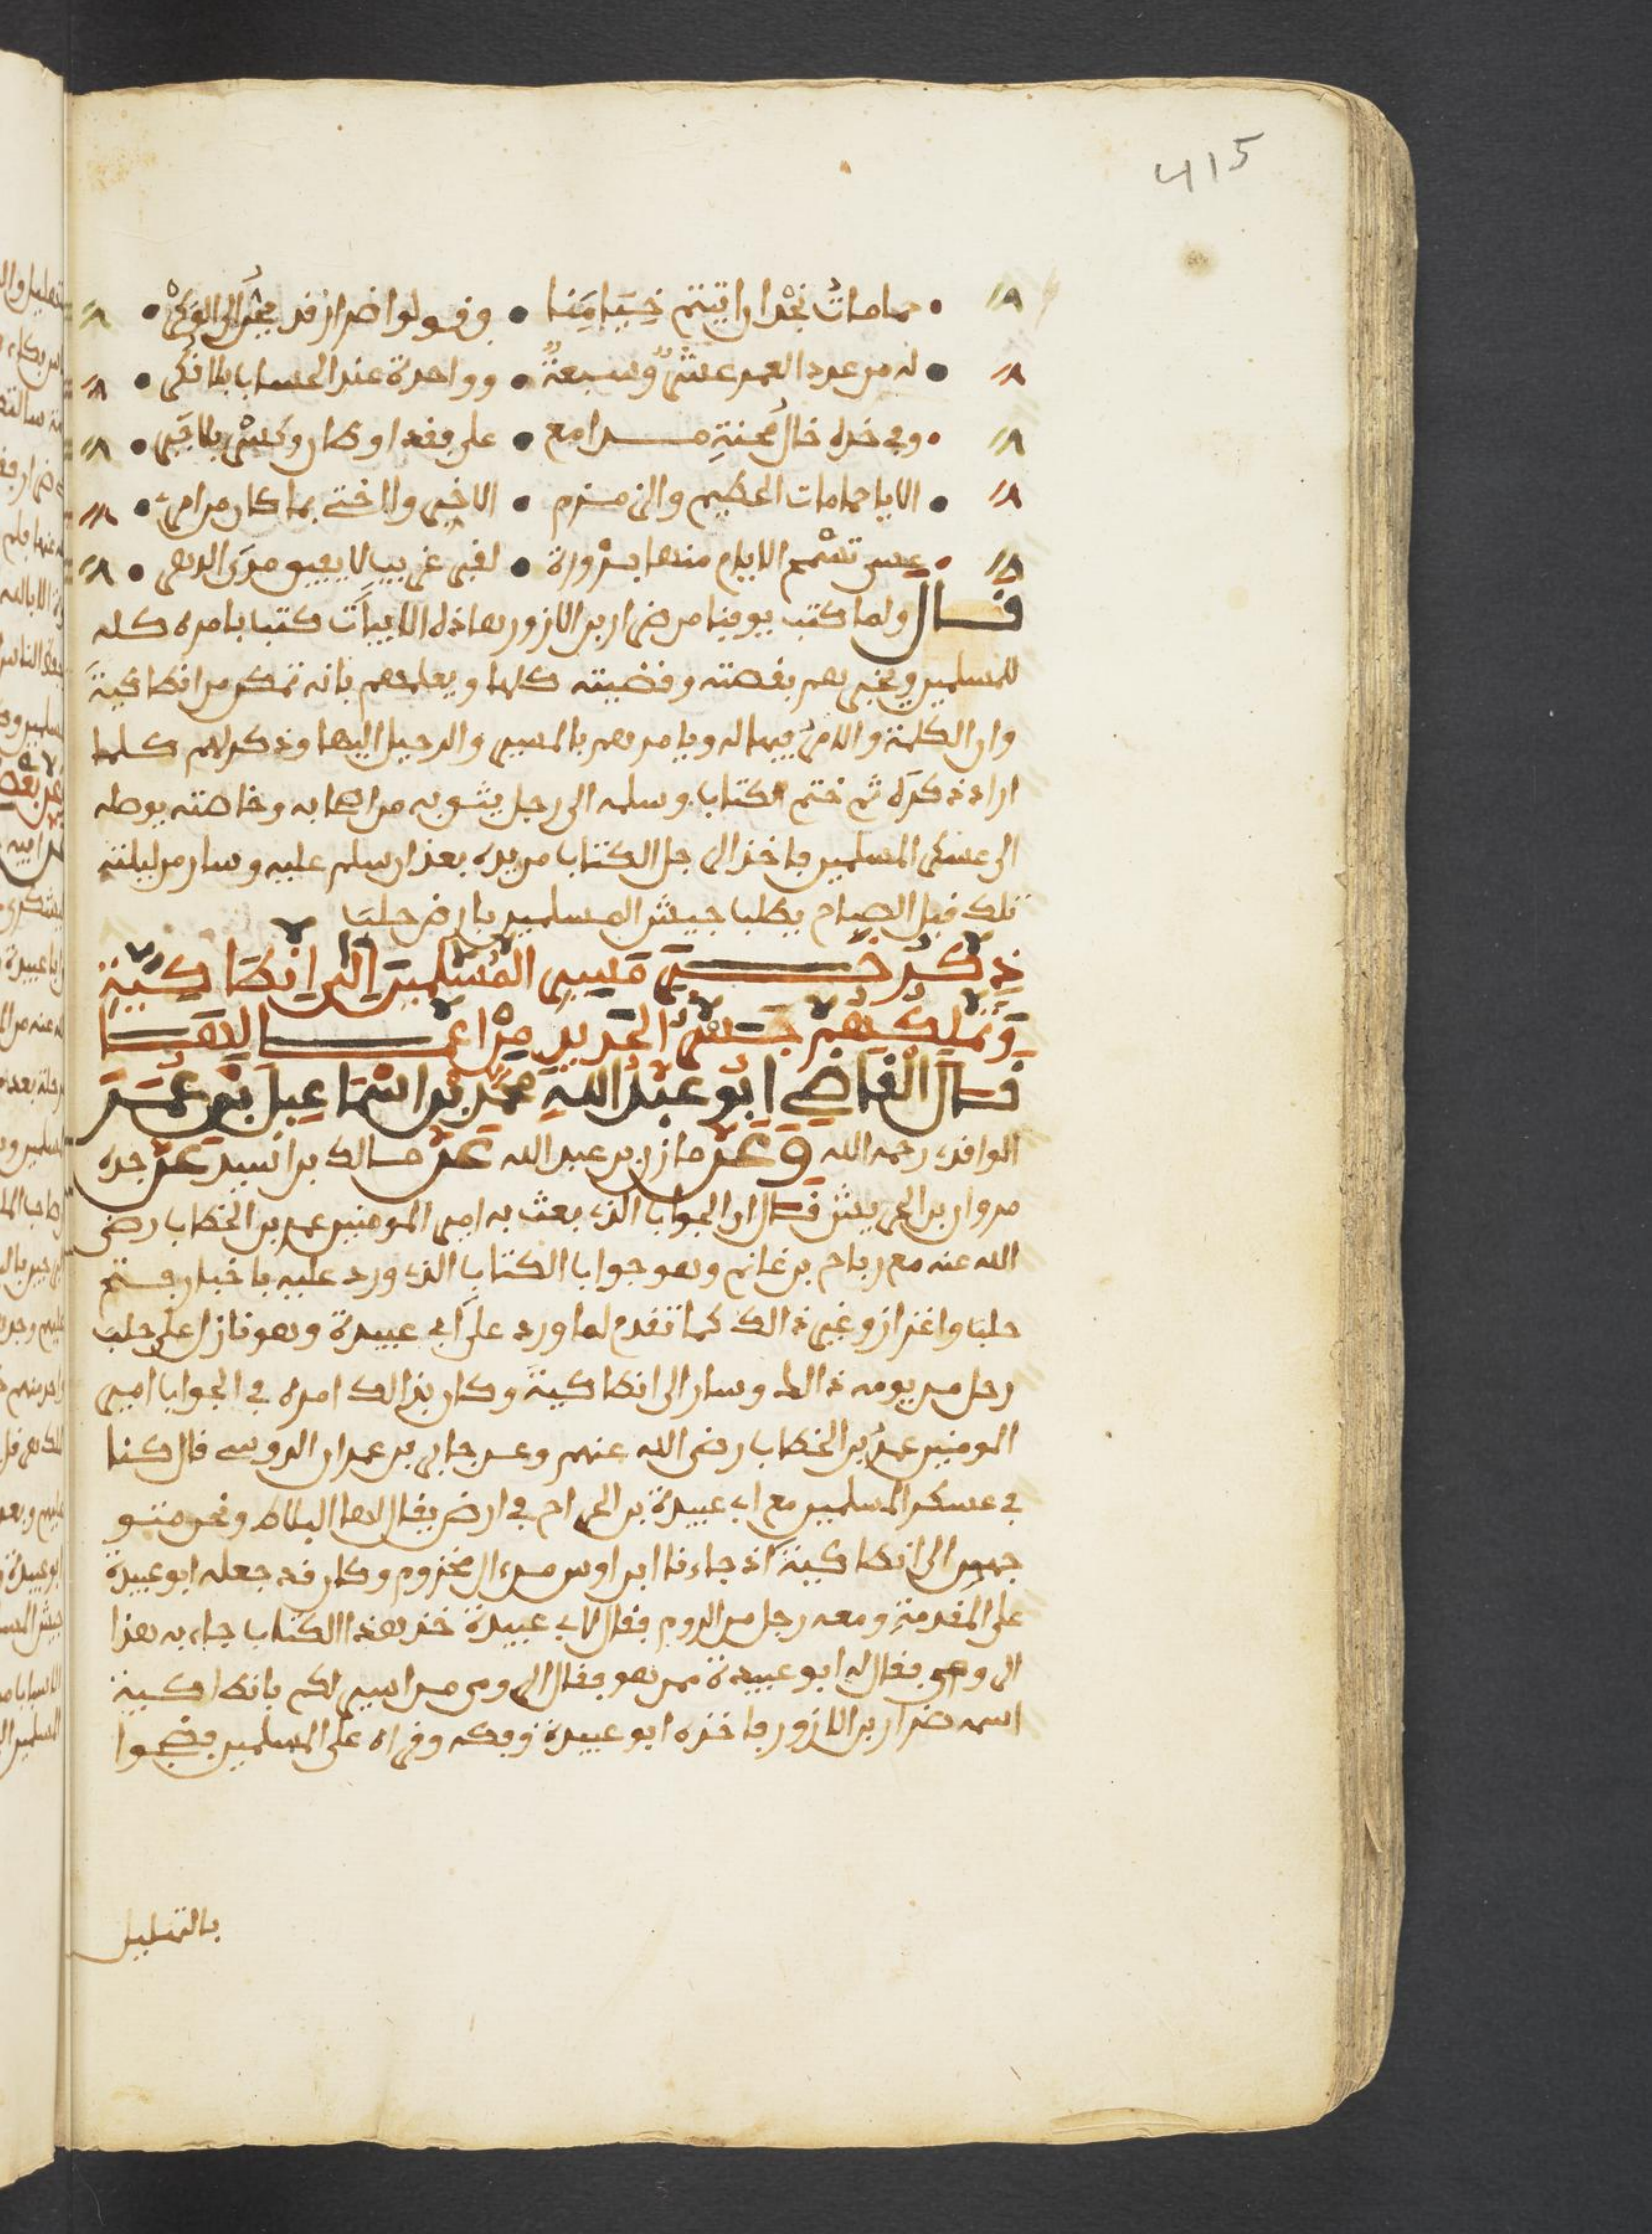 415
حمامات نجد ان اتيتم خيامنا • وقولوا ضرار قد يجر الى الوكر •
له من عدد العمر عشر وسبعة • وواحدة عند الحساب بلا نكر •
وفي خده خال محته مدامع • على فقد اوطان وكسر بلا جبر •
الا يا حمامات الحطيم والزمزم • الا اخبرى والدتي بما كان من امر •
عسى تسمح الايام منها بزورة • لقبر غريب لا يفيق مدى الدهر •
قال ولما كتب يوقنا من ضرار بن الازور هاذه الابيات كتب بامره كله
للمسلمين ويخبرهم بقصته وقضيته كلها ويعلمهم بانه تمكن من انطاكية
وان الكلمة والامر فيها له ويامرهم بالمسير والرحيل اليها وذكر لهم كلما
اراد ذكره ثم ختم الكتاب وسلمه الى رجل يثق به من اصحابه وخاصته يوصله
الى عسكر المسلمين فاخذ الرجل الكتاب من يده بعد ان سلم عليه وسار من ليلته
تلك قبل الصباح يطلب جيش المسلمين بارض حلب
ذكر خبر مسير المسلمين الى انطاكية
وتمليكهم جسر الحديد من اعمالها
قال القاضي ابو عبد الله محمد بن اسماعيل بن عمر
الواقدى رحمه الله وعن مازن بن عبد الله عن مالك بن اسيد عن جده
مروان بن الحريش قال ان الجواب الذى بعث به امير المومنين عمر بن الخطاب رضي
الله عنه مع رباح بن غانم وهو جواب الكتاب الذى ورد عليه باخبار فتح
حلب واعزاز وغير ذالك كما تقدم لما ورد على ابى عبيدة وهو نازل على حلب
رحل من يومه ذالك وسار الى انطاكية وكان بذالك امره في الجواب امير
المومنين عمر بن الخطاب رضي الله عنهم وعن جابر بن عمران الدوسي قال كنا
في عسكر المسلمين مع ابى عبيدة بن الجراح في ارض يقال لها البلاط ونحن متو
جهين الى انطاكية اذ جاءنا ابن اوس من ال مخزوم وكان قد جعله ابو عبيدة
على المقدمة ومعه رجل من الروم فقال لابى عبيدة خذ هذا الكتاب جاء به هذا
الرومي فقال له ابو عبيدة ممن هو فقال الرومي من اسير لكم بانطاكية
اسمه ضرار بن الازور فاخذه ابو عبيدة وفكه وقراه على المسلمين فضجوا
بالتهليل